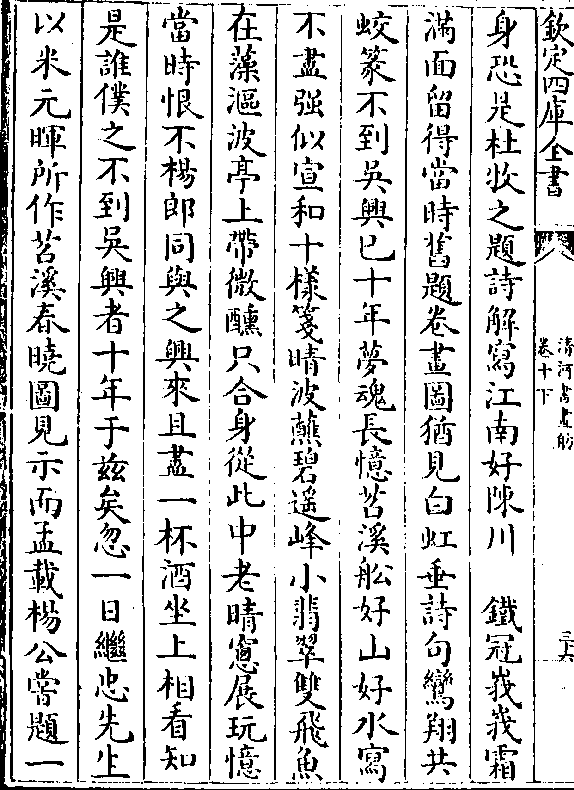 欽定四庫全書
清河書畫舫
卷十下
三六
身恐是杜牧之題詩解寫江南好陳川　鐵冠峩峩霜
滿面留得當時舊題卷畫圖猶見白虹垂詩句鸞翔共
蛟篆不到吳興已十年夢魂長憶苕溪船好山好水寫
不盡强似宣和十樣箋晴波蘸碧遥峰小翡翠雙飛魚
在藻漚波亭上帶微醺只合身從此中老晴窻展玩憶
當時恨不楊郎同與之興來且盡一杯酒坐上相看知
是誰僕之不到吳興者十年于兹矣忽一日繼忠先生
以米元暉所作苕溪春曉圖見示而孟載楊公嘗題一